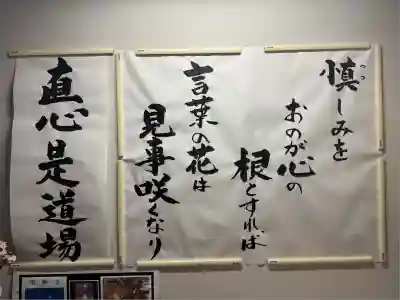 慎しみを
おのが心の
根とすれば
言葉の花は
見事咲くなり
直心是道場